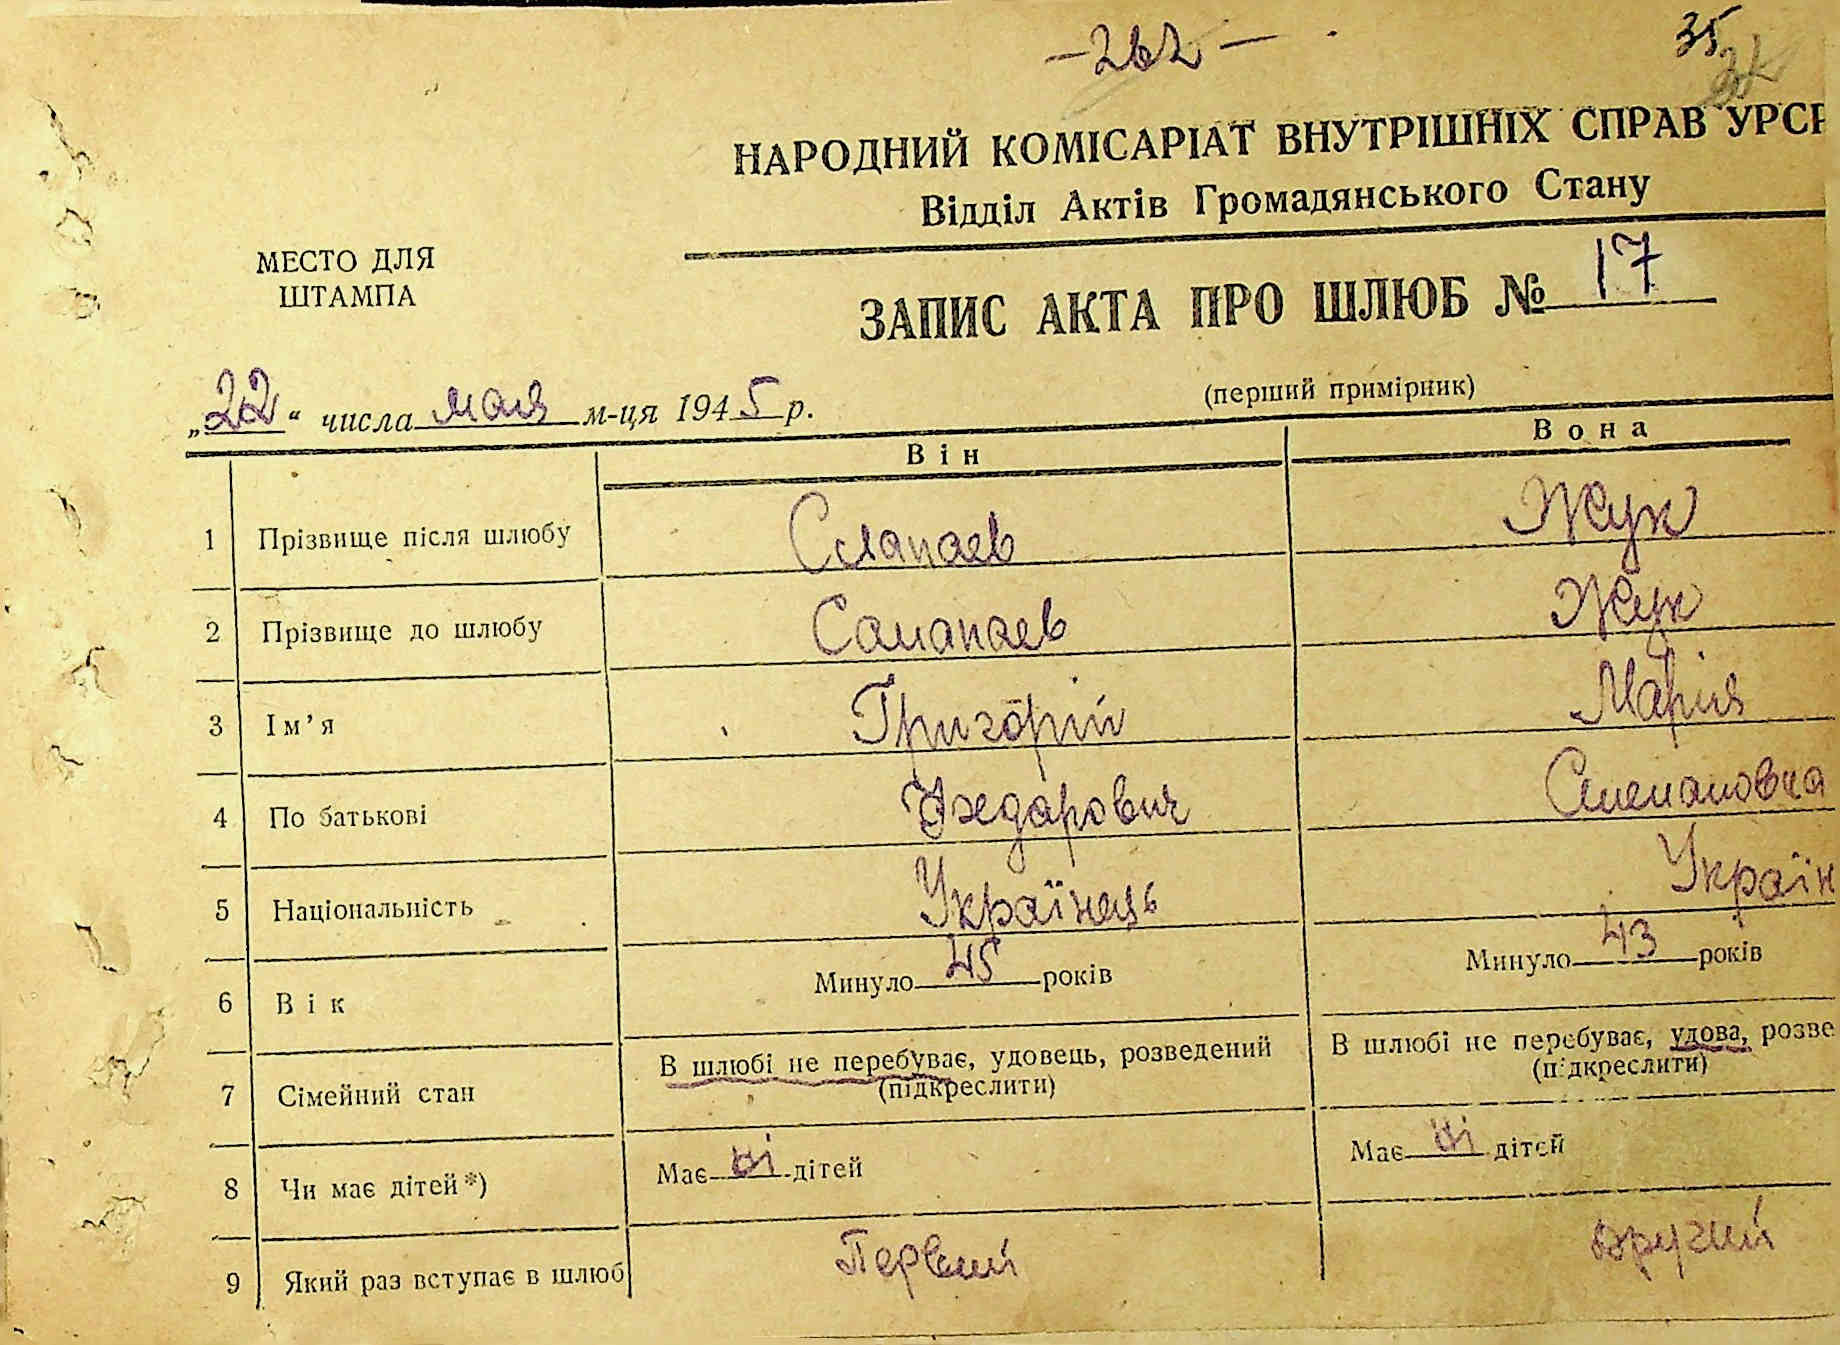 -262-
35
НАРОДНИЙ КОМІСАРІАТ ВНУТРІШНІХ СПРАВ УРСР
Відділ Актів Громадянського Стану
МЕСТО ДЛЯ
ШТАМПА
ЗАПИС АКТА ПРО ШЛЮБ № 17
(перший примірник)
„22“ числа мая м-ця 1945 р.
Він Вона
1 Прізвище після шлюбу Жук
2 Прізвище до шлюбу Жук
3 Ім'я Григорій Марія
4 По батькові Степановна
5 Національність Українець Україн
6 Вік Минуло 45 років Минуло 43 років
7 Сімейний стан В шлюбі не перебуває, удовець, розведений В шлюбі не перебуває, удова, розве
(підкреслити) (підкреслити)
8 Чи має дітей*) Має ні дітей Має ні дітей
9 Який раз вступає в шлюб Первий другий